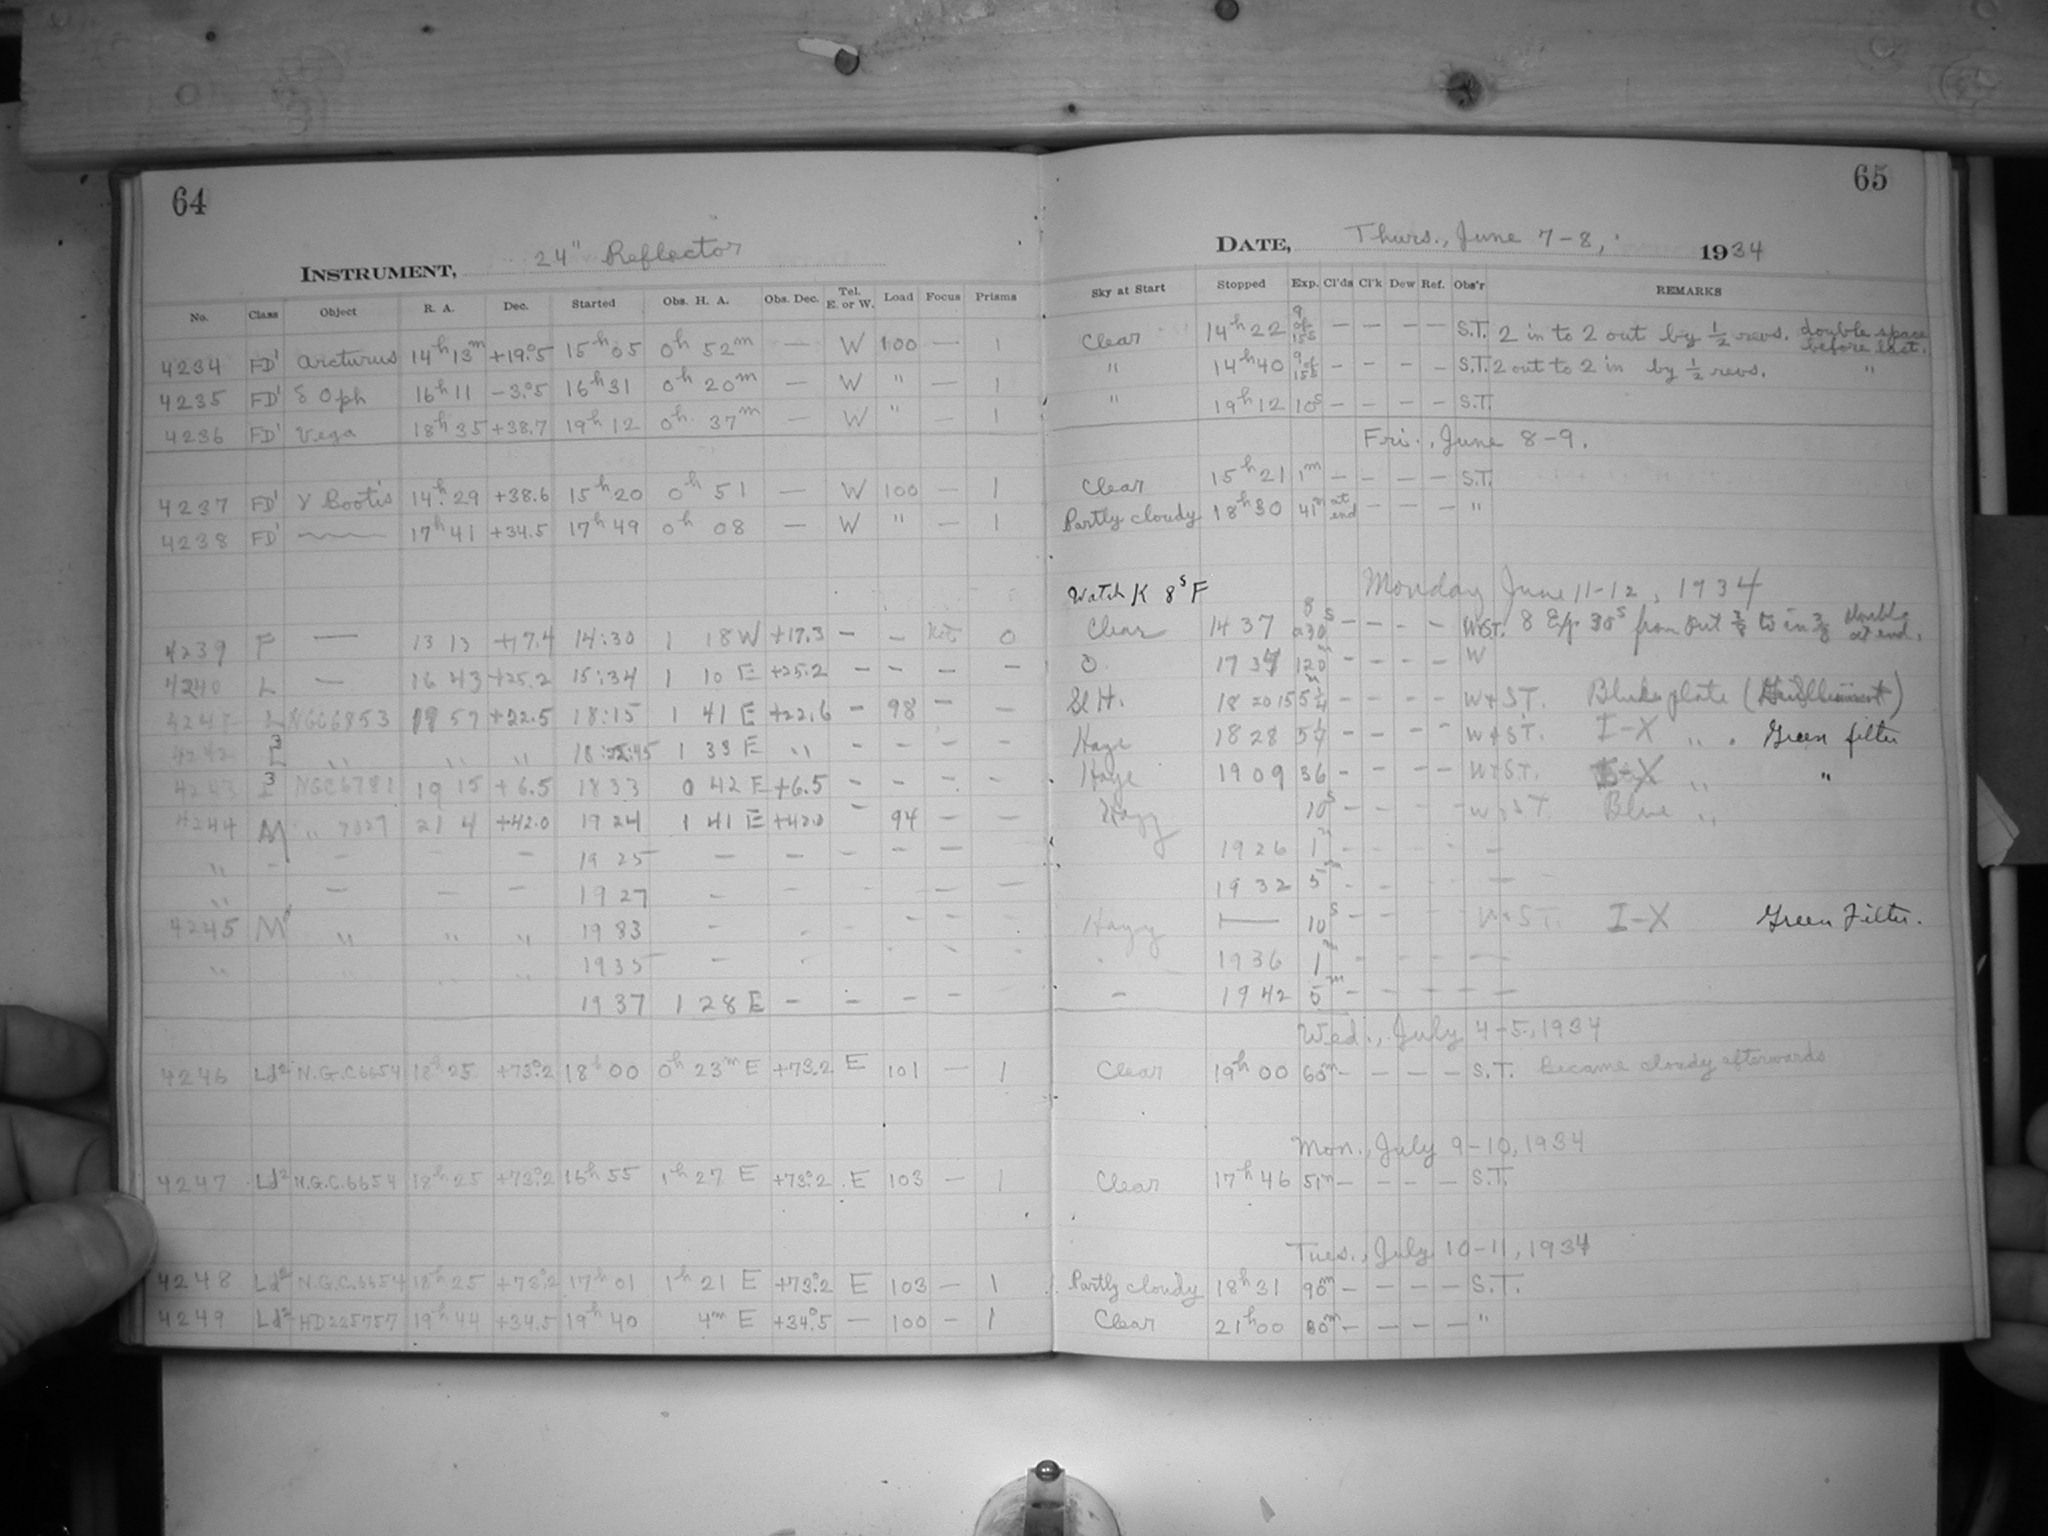 64
INSTRUMENT, 24" Reflector
No. Class Object R. A. Dec. Started Obs. H. A. Obs. Dec. Tel. E. or W. Load Focus Prisms
4234 FD¹ Arcturus 14ʰ 13ᵐ +19.°5 15ʰ 05 0ʰ 52ᵐ — W 100 — 1
4235 FD¹ δ Oph 16ʰ 11 -3.°5 16ʰ 31 0ʰ 20ᵐ — W " — 1
4236 FD¹ Vega 18ʰ 35 +38.7 19ʰ 12 0ʰ 37ᵐ — W " — 1
4237 FD¹ γ Bootis 14ʰ 29 +38.6 15ʰ 20 0ʰ 51 — W 100 — 1
4238 FD¹ 17ʰ 41 +34.5 17ʰ 49 0ʰ 08 — W " — 1
4239 F — 13 13 +17.4 14:30 1 18 W +17.3 — — 0
4240 L — 16 43 +25.2 15:34 1 10 E +25.2 — — — —
4241 L NGC6853 19 57 +22.5 18:15 1 41 E +22.6 — 98 — —
4242 L³ " " " 18:22:45 1 33 E " — — — —
4243 L³ NGC6781 19 15 +6.5 18 33 0 42 E +6.5 — — — —
4244 M " 7027 21 4 +42.0 19 24 1 41 E +42.0 — 94 — —
" — — — — 19 25 — — — — — —
" — — — 19 27 — — — — — —
4245 M " " " 19 33 — — — — — —
" " " " 19 35 — — — —
19 37 1 28 E — — — —
4246 Ld² N.G.C.6654 18ʰ 25 +73.°2 18ʰ 00 0ʰ 23ᵐ E +73.2 E 101 — 1
4247 Ld² N.G.C.6654 18ʰ 25 +73.°2 16ʰ 55 1ʰ 27 E +73.°2 E 103 — 1
4248 Ld² N.G.C.6654 18ʰ 25 +73.°2 17ʰ 01 1ʰ 21 E +73.°2 E 103 — 1
4249 Ld² HD225757 19ʰ 44 +34.5 19ʰ 40 4ᵐ E +34.°5 — 100 — 1
65
DATE, Thurs., June 7-8, 1934
Sky at Start Stopped Exp. Cl'ds Cl'k Dew Ref. Obs'r REMARKS
Clear 14ʰ 22 9 of 15ˢ — — — — S.T. 2 in to 2 out by ½ revs. double space before last.
" 14ʰ 40 9 of 15ˢ — — — — S.T. 2 out to 2 in by ½ revs. "
" 19ʰ 12 10ˢ — — — — S.T.
Fri., June 8-9.
Clear 15ʰ 21 1ᵐ — — — — S.T.
Partly cloudy 18ʰ 30 41ᵐ at end — — — "
Watch K 8ˢ F
Monday June 11-12, 1934
Clear 14 37 8 @ 30ˢ — — — — W+S.T. 8 Exp. 30ˢ from out ⅜ to in ⅜ double at end.
O. 17 34 120ᵐ — — — — W
Sl H. 18 20 15 5¼ᵐ — — — — W+S.T. Blue plate
Haze 18 28 5¼ — — — — W+S.T. I-X " Green filter
Haze 19 09 36 — — — — W+S.T. I-X " "
Hazy 10ˢ — — — — W+S.T. Blue "
19 26 1ᵐ — — — — —
19 32 5ᵐ — — — — —
Hazy — 10ˢ — — W+S.T. I-X Green Filter.
19 36 1ᵐ — — — — —
— 19 42 5ᵐ — — — — —
Wed., July 4-5, 1934
Clear 19ʰ 00 60ᵐ — — — — S.T. Became cloudy afterwards
Mon., July 9-10, 1934
Clear 17ʰ 46 51ᵐ — — — — S.T.
Tues., July 10-11, 1934
Partly cloudy 18ʰ 31 90ᵐ — — — — S.T.
Clear 21ʰ 00 80ᵐ — — — — "